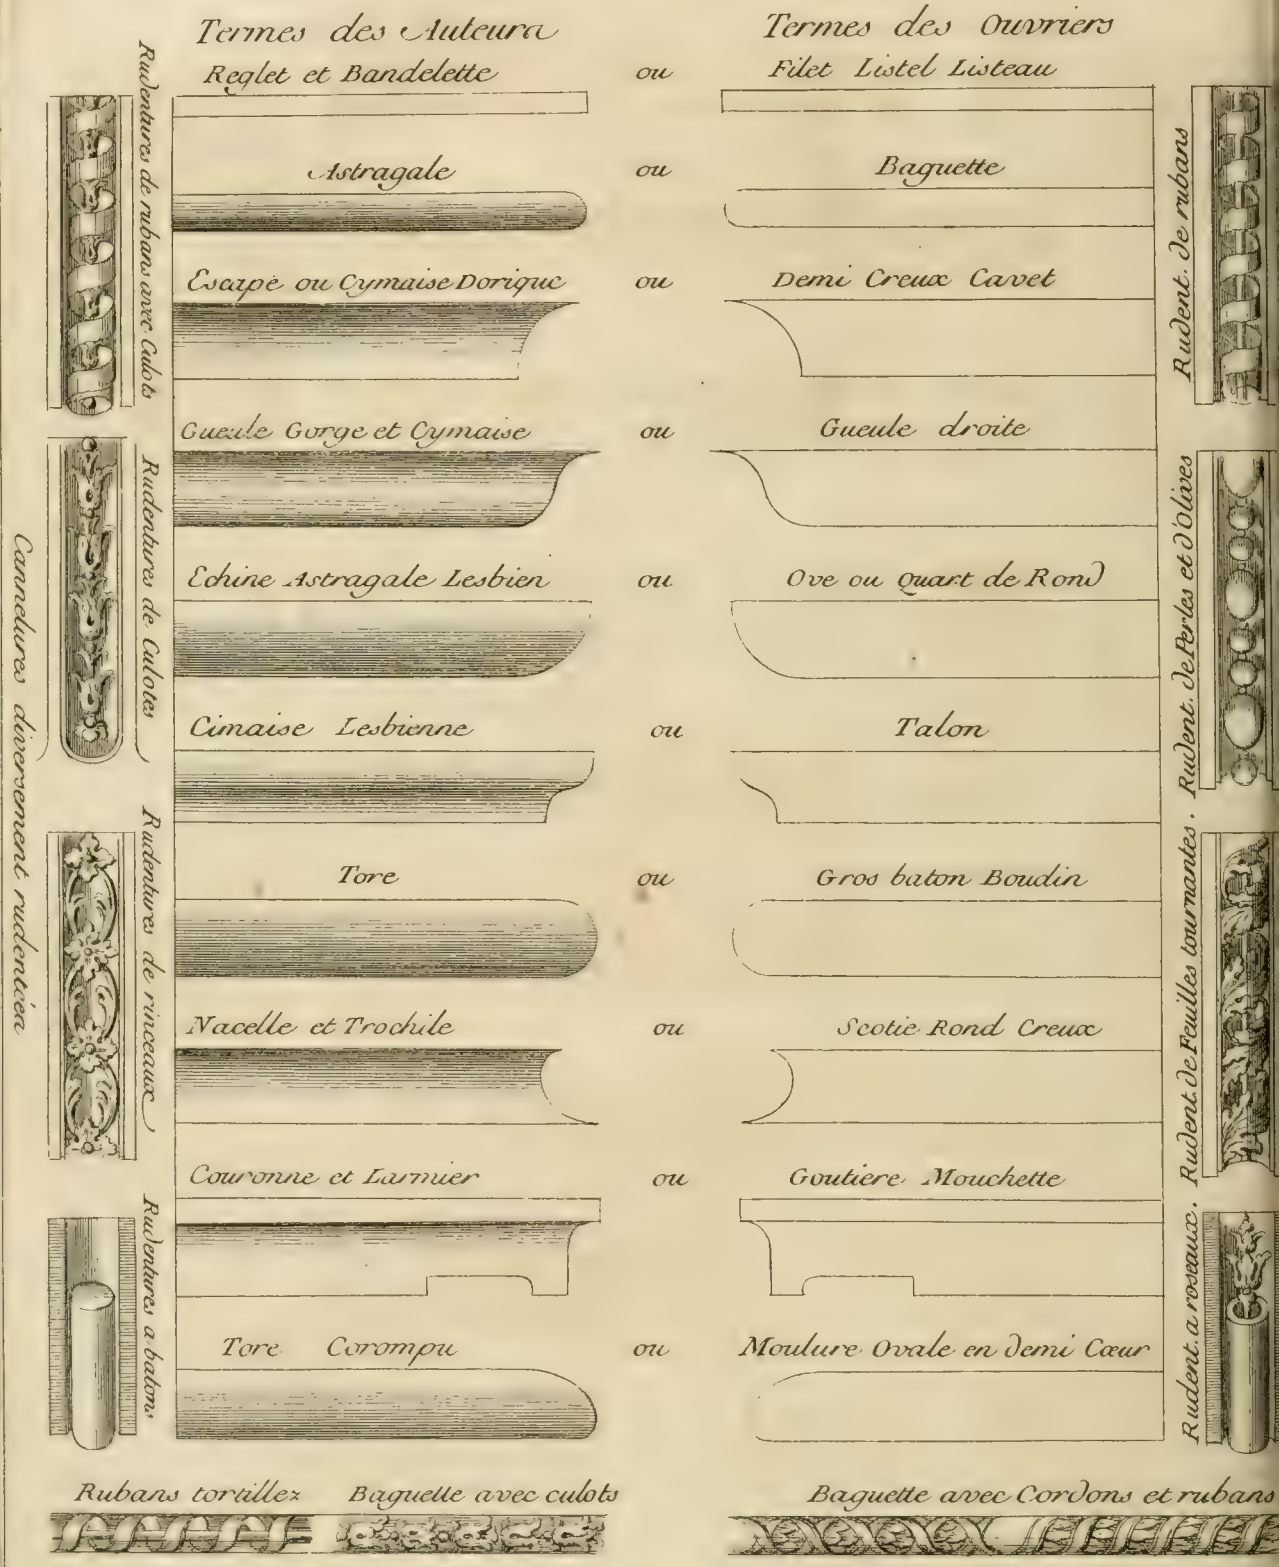 Termes des Auteurs
Termes des Ouvriers
Reglet et Bandelette ou Filet Listel Listeau
Astragale ou Baguette
Escape ou Cymaise Dorique ou Demi Creux Cavet
Gueule Gorge et Cymaise ou Gueule droite
Echine Astragale Lesbien ou Ove ou Quart de Rond
Cimaise Lesbienne ou Talon
Tore ou Gros baton Boudin
Nacelle et Trochile ou Scotie Rond Creux
Couronne et Larmier ou Goutiere Mouchette
Tore Corompu ou Moulure Ovale en demi Cœur
Cannelures diversement rudentées
Rudentures de rubans avec Culots
Rudentures de Culotes
Rudentures de rinceaux
Rudentures a batons
Rudent. de rubans
Rudent. de Perles et d'Olives
Rudent. de Feuilles tournantes.
Rudent. a roseaux.
Rubans tortillez
Baguette avec culots
Baguette avec Cordons et rubans